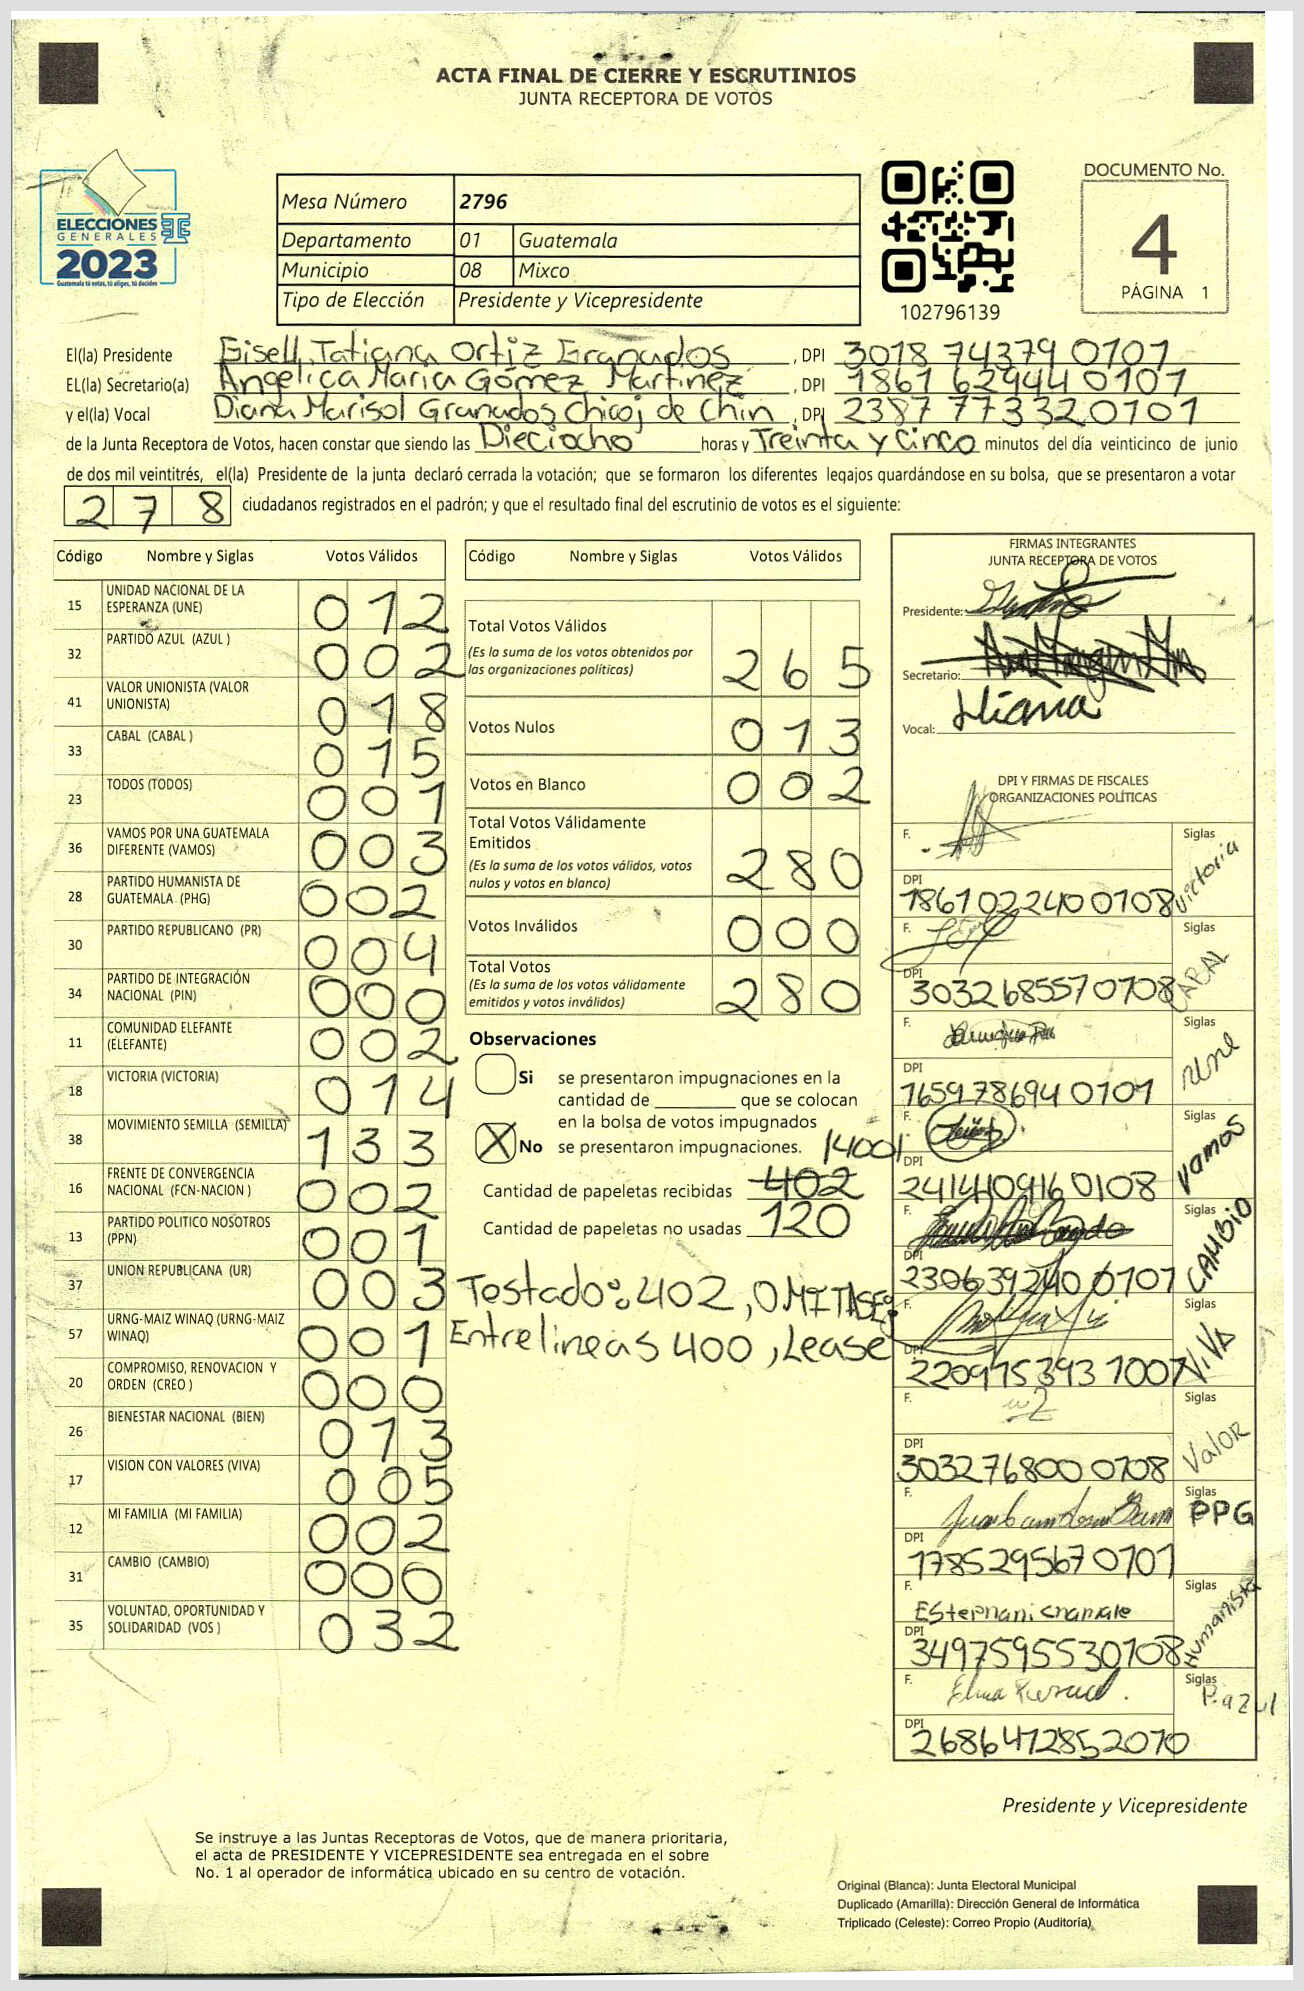 ACTA FINAL DE CIERRE Y ESCRUTINIOS
JUNTA RECEPTORA DE VOTOS
ELECCIONES
GENERALES
2023
Guatemala tú votas, tú eliges, tú decides
Mesa Número 2796
Departamento 01 Guatemala
Municipio 08 Mixco
Tipo de Elección Presidente y Vicepresidente
102796139
DOCUMENTO No.
4
PÁGINA 1
El(la) Presidente Gisell Tatiana Ortiz Granados, DPI 3018 74379 0101
EL(la) Secretario(a) Angelica Maria Gómez Martinez, DPI 1861 62944 0101
y el(la) Vocal Diana Marisol Granados Chicoj de Chin, DPI 2387 77332 0101
de la Junta Receptora de Votos, hacen constar que siendo las Dieciocho horas y Treinta y cinco minutos del día veinticinco de junio
de dos mil veintitrés, el(la) Presidente de la junta declaró cerrada la votación; que se formaron los diferentes legajos guardándose en su bolsa, que se presentaron a votar
278 ciudadanos registrados en el padrón; y que el resultado final del escrutinio de votos es el siguiente:
Código Nombre y Siglas Votos Válidos
15 UNIDAD NACIONAL DE LA ESPERANZA (UNE) 012
32 PARTIDO AZUL (AZUL ) 002
41 VALOR UNIONISTA (VALOR UNIONISTA) 018
33 CABAL (CABAL ) 015
23 TODOS (TODOS) 001
36 VAMOS POR UNA GUATEMALA DIFERENTE (VAMOS) 003
28 PARTIDO HUMANISTA DE GUATEMALA (PHG) 002
30 PARTIDO REPUBLICANO (PR) 004
34 PARTIDO DE INTEGRACIÓN NACIONAL (PIN) 000
11 COMUNIDAD ELEFANTE (ELEFANTE) 002
18 VICTORIA (VICTORIA) 014
38 MOVIMIENTO SEMILLA (SEMILLA) 133
16 FRENTE DE CONVERGENCIA NACIONAL (FCN-NACION ) 002
13 PARTIDO POLITICO NOSOTROS (PPN) 001
37 UNION REPUBLICANA (UR) 003
57 URNG-MAIZ WINAQ (URNG-MAIZ WINAQ) 001
20 COMPROMISO, RENOVACION Y ORDEN (CREO ) 000
26 BIENESTAR NACIONAL (BIEN) 013
17 VISION CON VALORES (VIVA) 005
12 MI FAMILIA (MI FAMILIA) 002
31 CAMBIO (CAMBIO) 000
35 VOLUNTAD, OPORTUNIDAD Y SOLIDARIDAD (VOS ) 032
Código Nombre y Siglas Votos Válidos
Total Votos Válidos
(Es la suma de los votos obtenidos por las organizaciones políticas) 265
Votos Nulos 013
Votos en Blanco 002
Total Votos Válidamente Emitidos
(Es la suma de los votos válidos, votos nulos y votos en blanco) 280
Votos Inválidos 000
Total Votos
(Es la suma de los votos válidamente emitidos y votos inválidos) 280
Observaciones
Si se presentaron impugnaciones en la
cantidad de ________ que se colocan
en la bolsa de votos impugnados
X No se presentaron impugnaciones.
14001
Cantidad de papeletas recibidas 402
Cantidad de papeletas no usadas 120
Testado: 402, OMITASE:
Entrelineas 400, Lease
FIRMAS INTEGRANTES
JUNTA RECEPTORA DE VOTOS
Presidente:
Secretario:
Vocal: Diana
DPI Y FIRMAS DE FISCALES
ORGANIZACIONES POLÍTICAS
F. Siglas Victoria
DPI 1861022400108
F. Siglas CABAL
DPI 3032685570708
F. Siglas UNE
DPI 1659786940101
F. Siglas Vamos
DPI 2414409160108
F. Siglas CAMBIO
DPI 2306392400101
F. Siglas VIVA
DPI 2209753931007
F. Siglas Valor
DPI 3032768000108
F. Siglas PPG
DPI 1785295670101
F. Siglas Humanista
DPI 3497595530108
F. Siglas P.azul
DPI 2686412852070
Presidente y Vicepresidente
Se instruye a las Juntas Receptoras de Votos, que de manera prioritaria,
el acta de PRESIDENTE Y VICEPRESIDENTE sea entregada en el sobre
No. 1 al operador de informática ubicado en su centro de votación.
Original (Blanca): Junta Electoral Municipal
Duplicado (Amarilla): Dirección General de Informática
Triplicado (Celeste): Correo Propio (Auditoría)